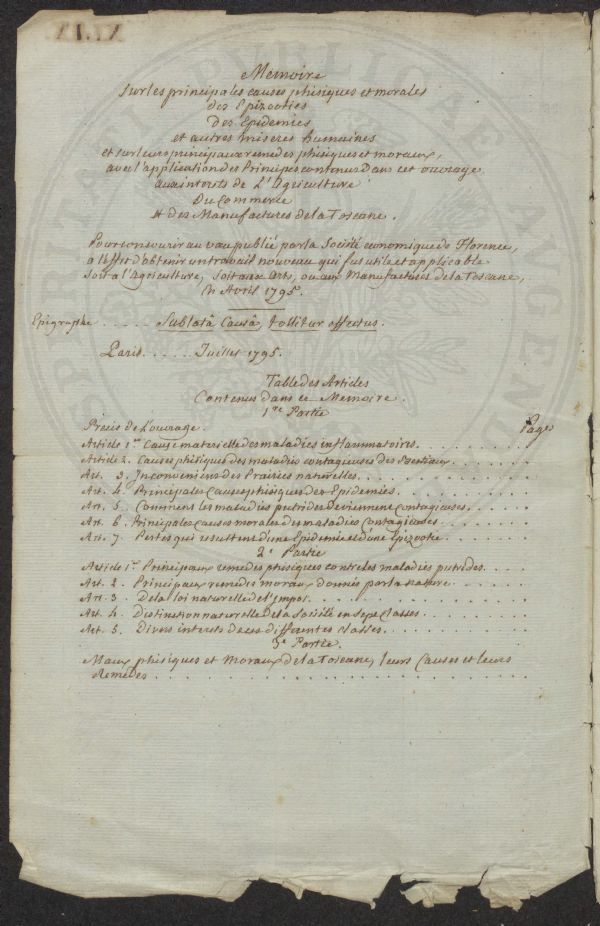 Memoire
Sur les principales causes phisiques et morales
des Epizooties
Des Epidemies
et autres miseres humaines
et sur leurs principaux remedes phisiques et moraux,
avec l'application des Principes contenus Dans cet ouvrage
aux interets de L'Agriculture
Du Commerce
et des Manufactures de la Toscane.
Pour concourir au vœu publié par la Société economique de Florence,
a l'effet d'obtenir un travail nouveau qui fut utile et applicable
soit a l'Agriculture, soit aux Arts, ou aux Manufactures de la Toscane,
en Avril 1795.
Epigraphe ..... Sublatâ Causâ, tollitur effectus.
Paris ..... Juillet 1795.
Table des Articles
Contenus dans ce Memoire.
1re Partie
Précis de L'ouvrage. Pages
Article 1er Cause materielle des maladies inflammatoires.
Article 2. Causes phisiques des maladies contagieuses des Bestiaux.
Art. 3. Inconveniens des Prairies naturelles.
Art. 4. Principales Causes phisiques des Epidemies.
Art. 5. Comment les maladies putrides Deviennent Contagieuses.
Art. 6. Principales causes morales des maladies Contagieuses
Art. 7. Pertes qui resultent d'une Epidemie et d'une Epizootie.
2e Partie
Article 1er Principaux remedes phisiques contre les maladies putrides.
Art. 2. Principaux remedes moraux donnés par la nature
Art. 3. De la loi naturelle et l'impot.
Art. 4. Distinction naturelle de la Société en Sept Classes.
Art. 5. Divers interets de ces differentes classes.
3e Partie.
Maux phisiques et Moraux de la Toscane, leurs Causes et leurs
Remèdes